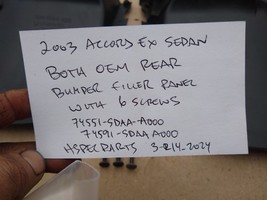 2003 ACCORD EX SEDAN
BOTH OEM REAR
BUMPER FILLER PANEL
WITH 6 SCREWS
74551-SDAA-A000
74591-SDAA A000
HSPECPARTS 3-214-2024